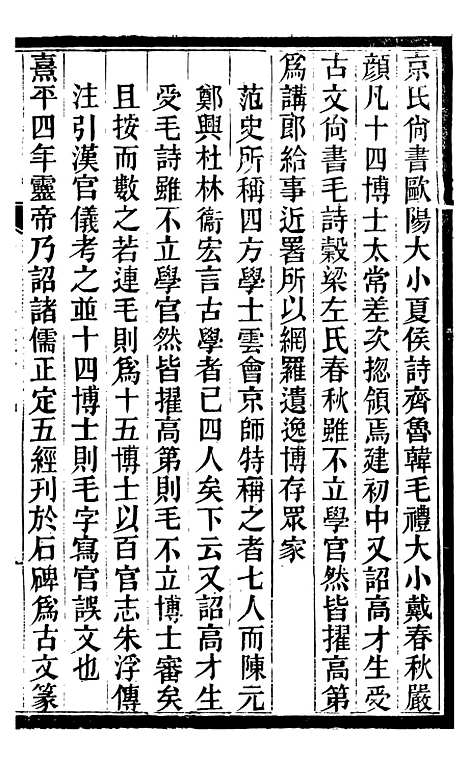 京氏尙書歐陽大小夏侯詩齊魯韓毛禮大小戴春秋嚴
顔凡十四博士太常差次揔領焉建初中又詔高才生受
古文尙書毛詩穀梁左氏春秋雖不立學官然皆擢高第
爲講郎給事近署所以網羅遺逸博存眾家
范史所稱四方學士雲會京師特稱之者七人而陳元
鄭興杜林衞宏言古學者已四人矣下云又詔高才生
受毛詩雖不立學官然皆擢高第則毛不立博士審矣
且按而數之若連毛則爲十五博士以百官志朱浮傳
注引漢官儀考之並十四博士則毛字寫官誤文也
熹平四年靈帝乃詔諸儒正定五經刊於石碑爲古文篆